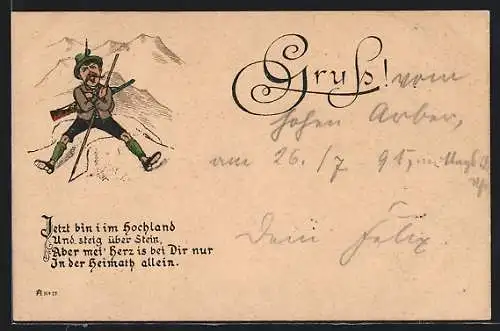 Gruß! vom
hohen Arber,
am 26./7 95,
Dein Felix.
Jetzt bin i im Hochland
Und steig über Stein,
Aber mei' Herz is bei Dir nur
In der Heimath allein.